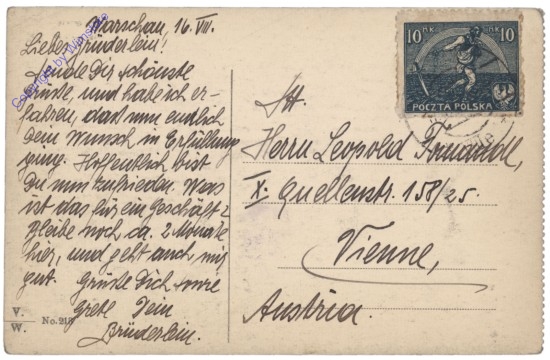 Warschau, 16. VII.
Liebes Brüderlein!
Sende Dir schönste
Grüße, und habe ich er-
fahren, daß nun endlich
Dein Wunsch in Erfüllung
ging. Hoffentlich bist
Du nun zufrieden. Was
ist das für ein Geschäft?
Bleibe noch ca. 2 Monate
hier, und geht auch mir
gut. Grüße Dich
Dein
Brüderlein.
V.
W.
No. 215
10 MK
MK 10
POCZTA POLSKA
Herrn Leopold
X. Quellenstr. 158/25.
Vienne,
Austria.
Copyright by